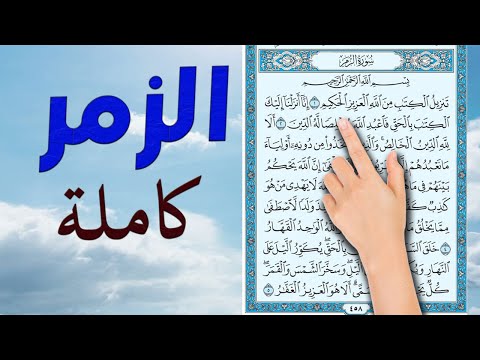 الزمر
كاملة
سُورَةُ الزُّمَرِ
بِسْمِ اللَّهِ الرَّحْمَٰنِ الرَّحِيمِ
تَنزِيلُ الْكِتَٰبِ مِنَ اللَّهِ الْعَزِيزِ الْحَكِيمِ ١ إِنَّا أَنزَلْنَا إِلَيْكَ
الْكِتَٰبَ بِالْحَقِّ فَاعْبُدِ اللَّهَ لَّهُ الدِّينَ ٢ أَلَا
لِلَّهِ الدِّينُ الْخَالِصُ مِن دُونِهِ أَوْلِيَاءَ
مَا نَعْبُدُهُمْ إِنَّ اللَّهَ يَحْكُمُ
بَيْنَهُمْ فِي لَا يَهْدِي مَنْ هُوَ
كَٰذِبٌ لَّاصْطَفَىٰ
مِمَّا يَخْلُقُ اللَّهُ الْوَٰحِدُ الْقَهَّارُ
٤ خَلَقَ بِالْحَقِّ يُكَوِّرُ الَّيْلَ عَلَى
النَّهَارِ وَسَخَّرَ الشَّمْسَ وَالْقَمَرَ
كُلٌّ يَجْرِي أَلَا هُوَ الْعَزِيزُ الْغَفَّٰرُ ٥
٤٥٨